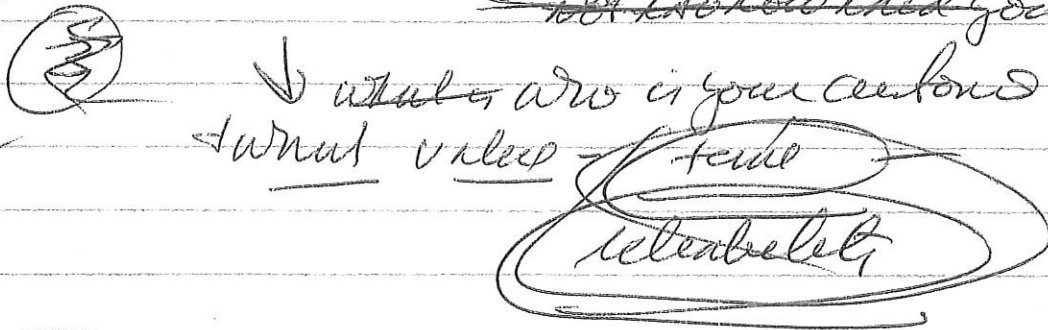 ↓ what is who is your customer
+ what value - time -
reliability